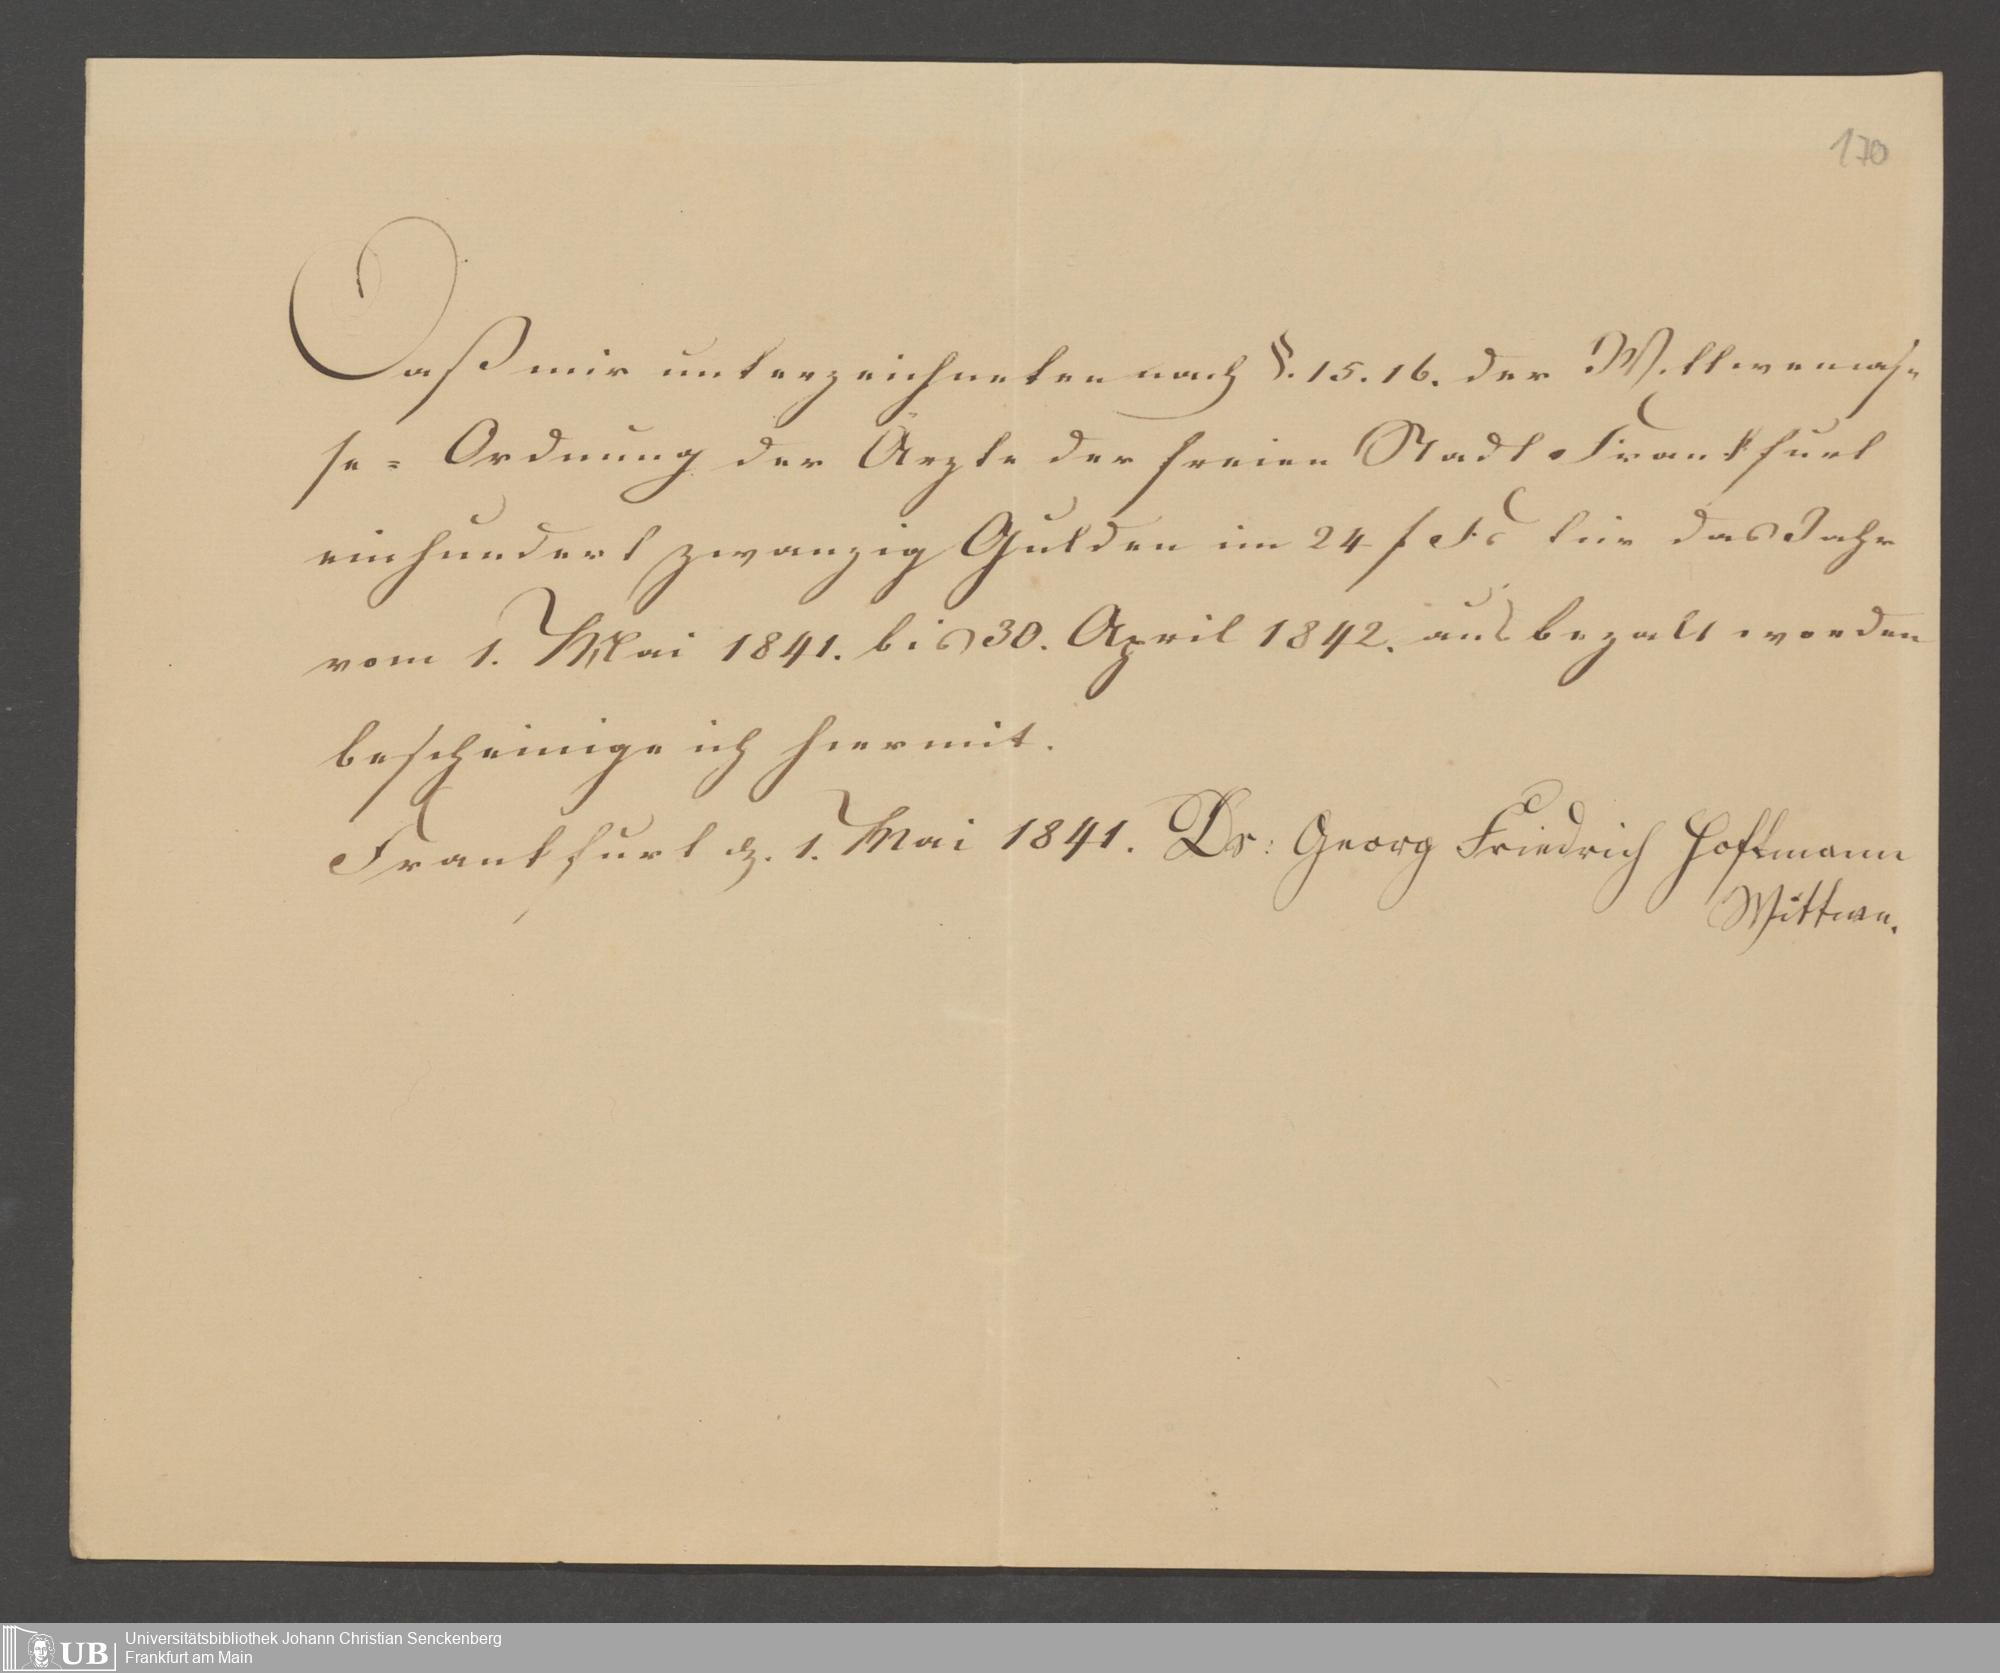 170
Daß mir unterzeichneten nach §. 15. 16. der Wittwencas-
se- Ordnung der Ärzte der freien Stadt Frankfurt
einhundert zwanzig Gulden im 24 f Fs für das Jahr
vom 1. Mai 1841. bis 30. April 1842. ausbezalt worden
bescheinige ich hiermit.
Frankfurt d. 1. Mai 1841. Dr: Georg Friedrich Hoffmann
Wittwe.
UB Universitätsbibliothek Johann Christian Senckenberg
Frankfurt am Main